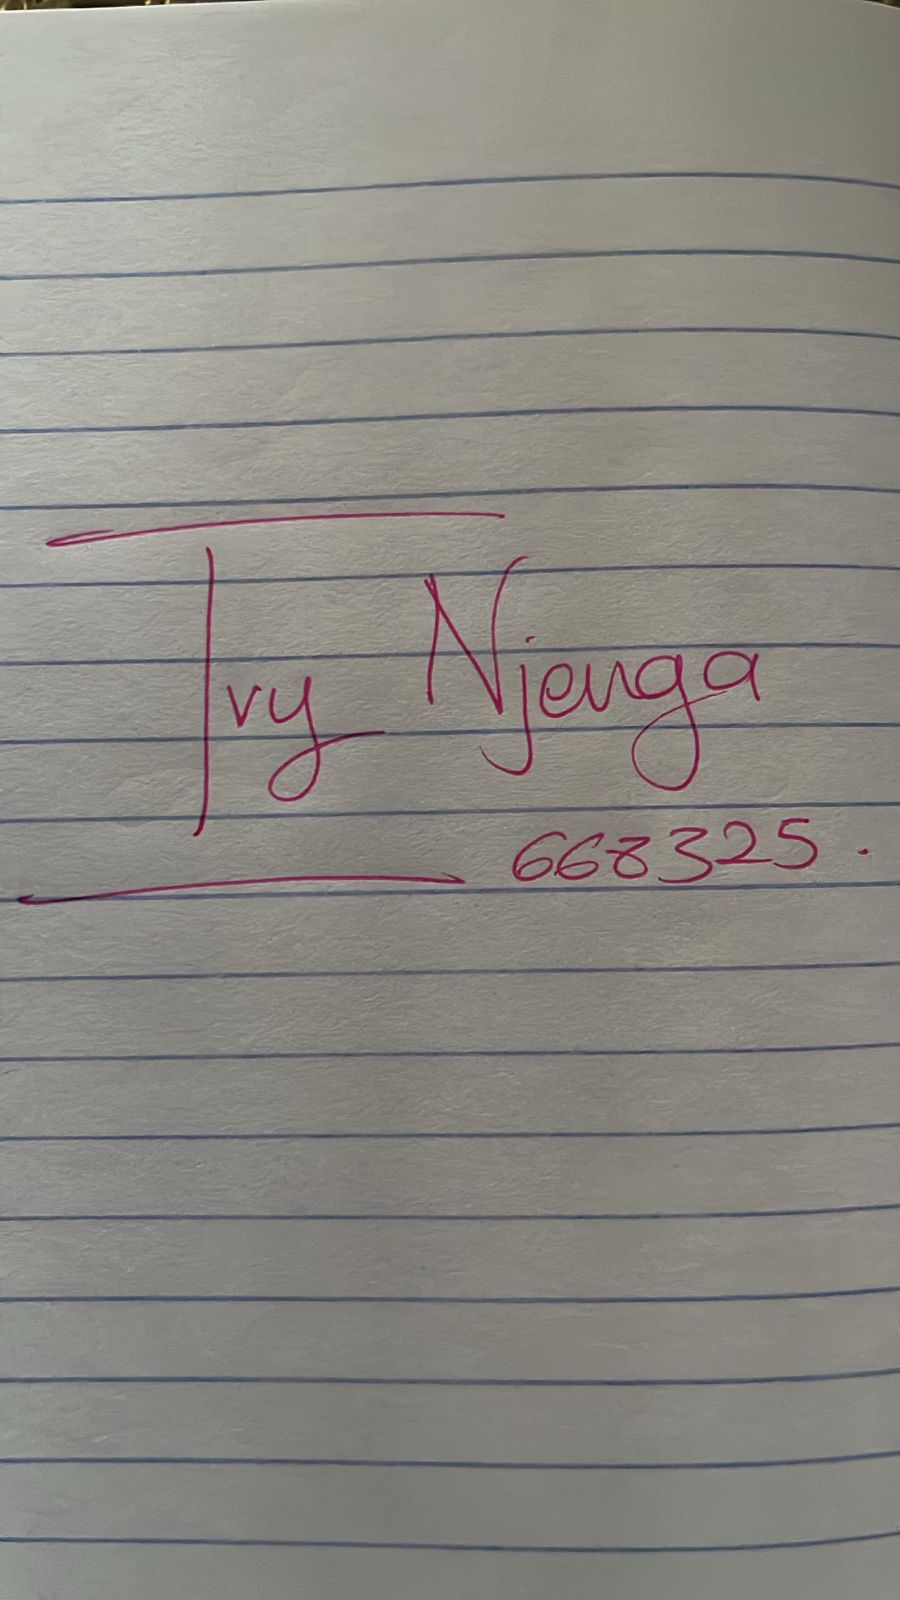 Ivy Njenga
668325.